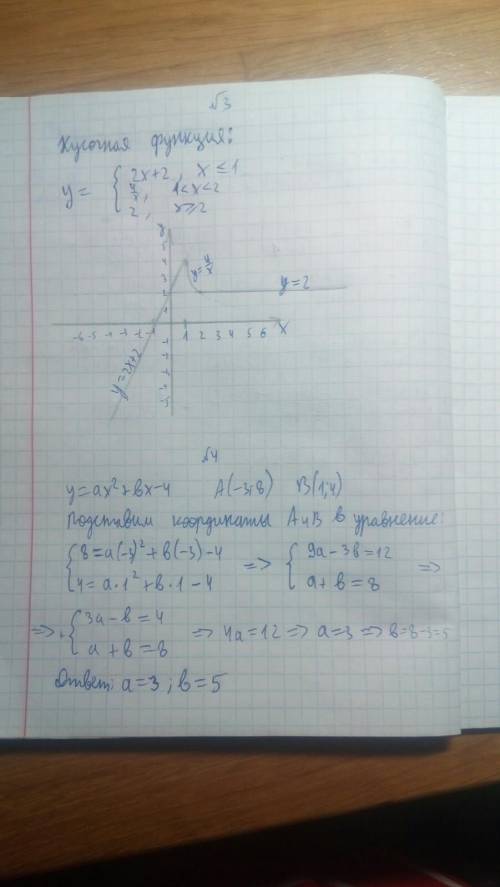 √3
Кусочная функция:
y = { 2x+2, x ≤ 1
4/x, 1<x<2
2, x ≥ 2
y
5
4
3
2
1
y=4/x
y=2
-6 -5 -4 -3 -2 -1 1 2 3 4 5 6 X
y=2x+2
√4
y=ax²+bx-4 A(-3;8) B(1;4)
Подставим координаты А и В в уравнение:
{ 8=a(-3)²+b(-3)-4 => { 9a-3b=12 =>
4=a·1²+b·1-4 a+b=8
=> + { 3a-b=4 => 4a=12 => a=3 => b=8-3=5
a+b=8
Ответ: a=3; b=5